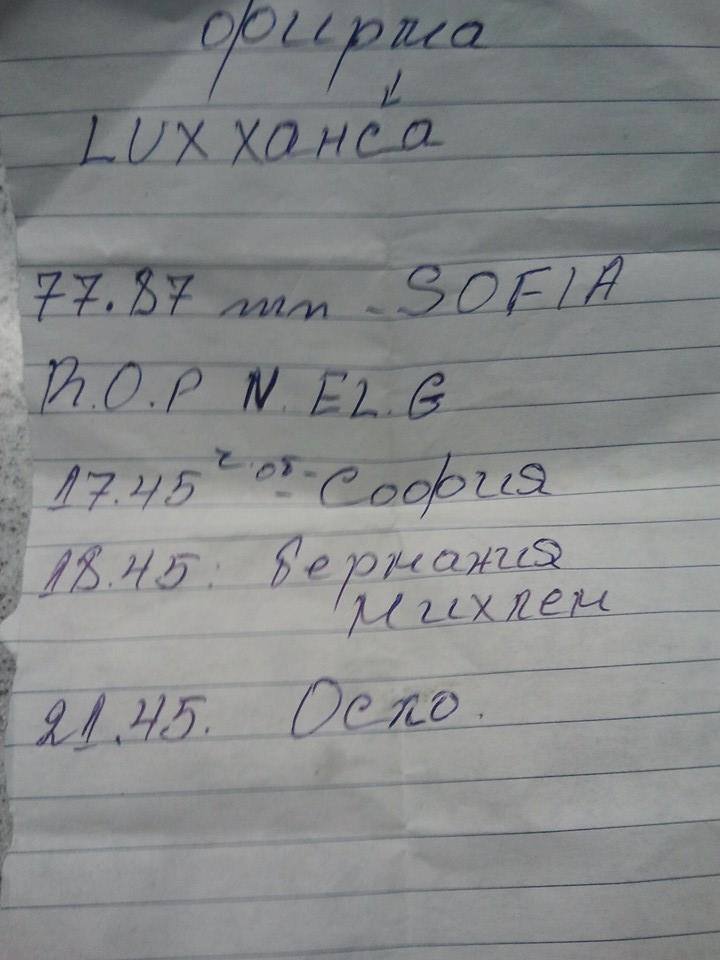 фирма
LUX ХАНСА
77.87 тт - SOFIA
R.O.P N. EL. G
17.45 ч. от - София
18.45: Германия
Михпен
21.45. Осло.